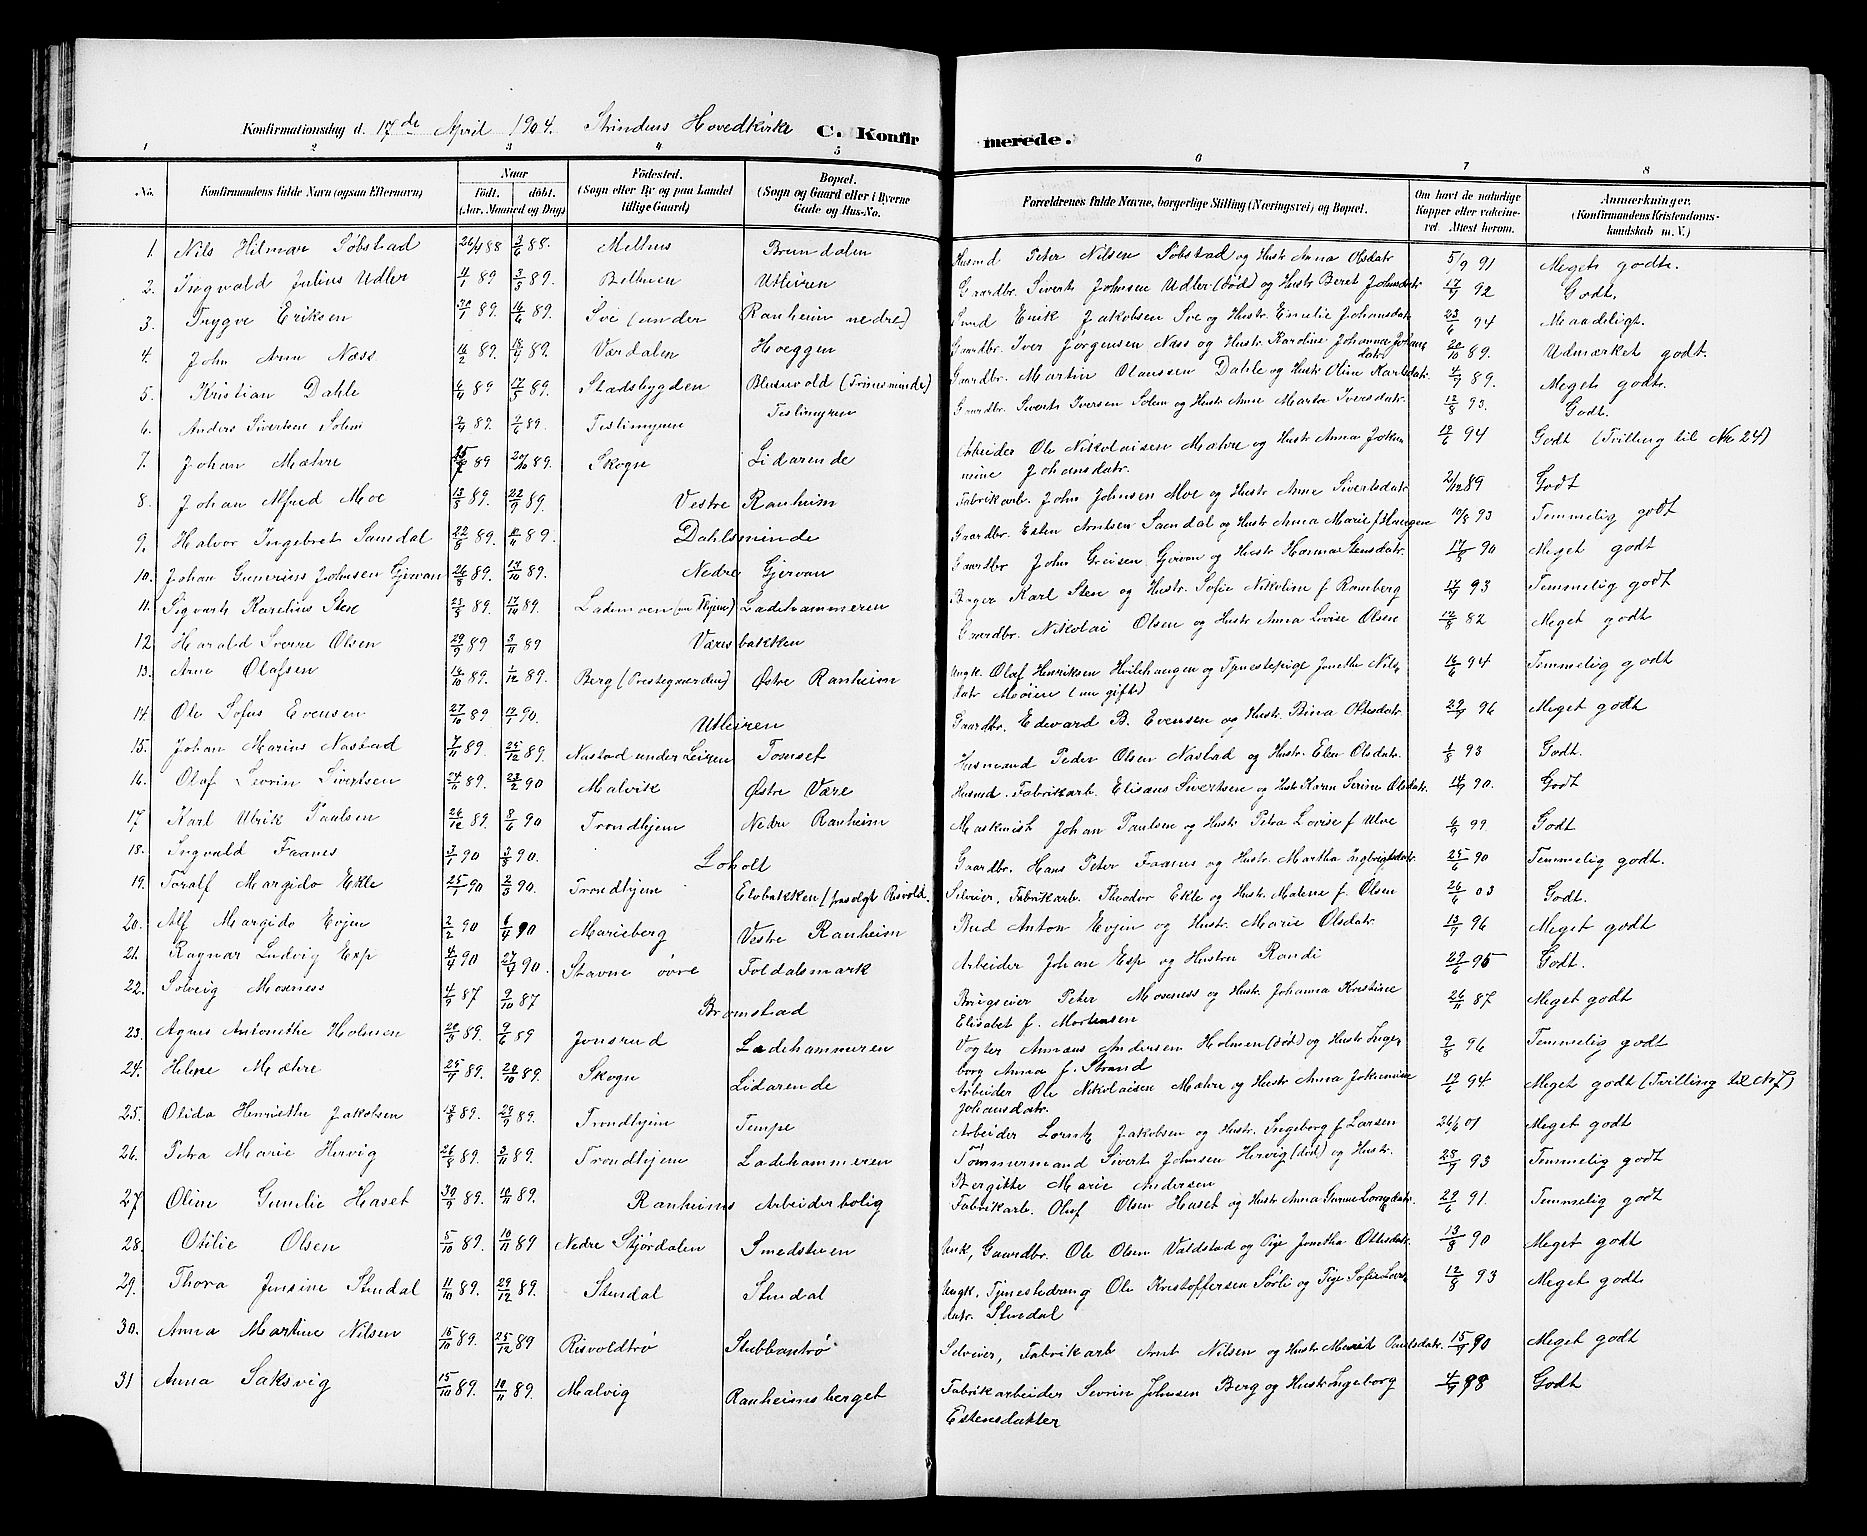 Konfirmationsdag d. 17de April 1904. Strindens Hovedkirke C. Konfirmerede.
1 2 3 4 5 6 7 8
No. Konfirmandens fulde Navn (ogsaa Efternavn) Naar født. døbt. (Aar, Maaned og Dag) Fødested. (Sogn eller By og paa Landet tillige Gaard) Bopæl. (Sogn og Gaard eller i Byerne Gade og Hus-No. Forældrenes fulde Navne, borgerlige Stilling (Næringsvei) og Bopæl. Om havt de naturlige Kopper eller vakcineret. Attest herom. Anmærkninger. (Konfirmandens Kristendomskundskab m. V.)
1. Nils Hilmar Søbstad 26/4 88 3/6 88. Melhus Brundalen Husmd Peter Nilsen Søbstad og Hustr Anna Olsdatr 5/9 91 Meget godt.
2. Ingvald Julius Udler 4/1 89 3/3 89. Utleiren Gaardbr. Sivert Johnsen Udler (død) og Hustr Beret Johnsdatr 17/9 92 Godt.
3. Trygve Eriksen 89. 16/6 89. Sve (under Ranheim nedre) Smd Erik Jakobsen Sve og Hustr. Emelie Johansdatr 23/6 94 Maadeligt.
4. John Arnt Næss 16/2 89. 89. Værdalen Hoeggen Gaardbr. Iver Jørgensen Næss og Hustr Karoline Johanna Johansdatr 20/10 89. Udmærket godt.
5. Kristian Dahle 6/4 89 17/5 89. Stadsbygden Blusuvold (Trinesminde) Gaardbr. Martin Olaussen Dahle og Hustr Oline Karlsdatr. 4/9 89. Meget godt.
6. Anders Sivertsen Solem 3/4 89. 2/6 89. Teslimyren Teslimyren Gaardbr. Sivert Iversen Solem og Hustr Ane Marta Iversdatr. 12/8 93. Godt.
7. Johan Mæhre 89 20/10 89. Skogn Lidarende Arbeider Ole Nikolaisen Mæhre og Hustr Anna Jokumine Johansdatr. 12/6 94 Godt (Tvilling til No 24)
8. Johan Alfred Moe 13/8 89. 22/9 89. Vestre Ranheim Fabrikarb. John Johnsen Moe og Hustr Ane Sivertsdatr 2/12 89 Godt
9. Halvor Ingebret Samdal 22/8 89. 2/11 89. Dahlsminde Gaardbr. Esten Arntsen Samdal og Hustr Anna Marie f Haugene 12/8 93 Temmelig godt
10. Johan Gunerius Johnsen Gjervan 26/8 89. 13/10 89. Nedre Gjervan Gaardbr John Greisen Gjervan og Hustr Hanna Stensdatr. 17/8 90 Meget godt
11. Sigvart Karelius Stene 23/8 89. 17/10 89. Lademoen (nu Thjem) Ladehammeren Borger Karl Stene og Hustr. Sofie Nikoline f Ramberg 12/9 93 Temmelig godt
12 Harald Sverre Olsen 29/9 89 3/11 89 Værebakken Gaardbr. Nikolai Olsen og Hustr Anna Lovise Olsen 12/8 82 Meget godt
13. Arne Olafsen 14/10 89. 1/12 89. Berg (Prestegaarden) Østre Ranheim Ungk. Olaf Henriksen Hvilehaugen og Tjenestepige Jonetha Nilsdatr Moøien (nu gift) 16/6 94 Temmelig godt
14. Ole Sofus Evensen 27/10 89 12/1 90. Utleiren Gaardbr. Edevard B. Evensen og Hustr. Bina Ottesdatr. 29/9 96 Meget godt
15. Johan Marius Nastad 7/11 89. 25/12 89. Nastad under Leiren Tomset Husmand Peder Olsen Nastad og Hustr. Elen Olsdatr. 1/8 93 Godt.
16. Olaf Sevrin Sivertsen 24/6 89. 23/2 90 Malvik Østre Være Husmd. Fabrikarb. Elisæus Sivertsen og Hustr Karen Serine Olsdatr. 14/9 90. Godt
17 Karl Ulrik Paulsen 26/12 89. 8/6 90 Trondhjem Nedre Ranheim Maskinist Johan Paulsen og Hustr. Petra Lovise f Ulve 6/9 99 Godt
18. Ingvald Faanes 3/1 90 3/3 90. Loholt Gaardbr. Hans Peter Faanes og Hustr. Martha Ingbrigtsdatr. 25/6 90 Temmelig godt.
19. Toralf Margido Ekle 25/1 90 2/3 90. Trondhjem Elvebakken (frasolgt Risvold. Selveier, Fabrikarb. Theodor Ekle og Hustr. Malene f. Olsen 26/6 03 Godt.
20. Alf Margido Evjen 2/2 90 6/4 90 Marieberg Vestre Ranheim Bud Anton Evjen og Hustr. Marie Olsdatr. 13/9 96 Meget godt
21. Ragnar Ludvig Esp 4/4 90 27/4 90. Stavne øvre Foldalsmark Arbeider Johan Esp og Hustru Randi 29/6 95 Godt.
22. Solveig Moseness 4/9 87 9/10 87 Bromstad Brugseier Peter Moseness og Hustr. Johanna Kristine Elisabet f. Mortensen 26/11 87 Meget godt
23. Agnes Antonethe Holmen 28/3 89. 9/6 89 Jonsrud Ladehammeren Vogter Annæus Andersen Holmen (død) og Hustr. Ingeborg Anna f. Strand 2/8 96 Temmelig godt
24. Helene Mæhre 25/7 89. 20/10 89. Skogn Lidarende Arbeider Ole Nikolaisen Mæhre og Hustr Anna Jokumine Johansdatr. 12/6 94 Meget godt (Tvilling til No 7)
25. Olida Henriethe Jakobsen 13/8 89. 29/9 89. Trondhjem Tempe Arbeider Lorntz Jakobsen og Hustr. Ingeborg f Larsen 26/6 01 Meget godt
26. Petra Marie Hervig 26/8 89. 3/11 89. Trondhjem Ladehammeren Tømmermand Sivert Johnsen Hervig (død) og Hustr. Bergitte Marie Andersen 28/9 93 Temmelig godt
27 Oline Gunelie Haset 30/9 89. 10/11 89. Ranheims Arbeiderbolig Fabrikarb. Oluf Olsen Haset og Hustr Anna Gurine Larsdatr. 29/6 91. Temmelig godt
28. Otilie Olsen 5/10 89. 10/11 89 Nedre Stjørdalen Smedstuen Unk, Gaardbr. Ole Olsen Valdstad og Pige Jonetha Ottesdatr. 13/9 90 Meget godt
29. Thora Jensine Stendal 11/10 89. 29/12 89. Stendal Stendal Ungk. Tjenestedreng Ole Kristoffersen Sørli og Pige Sofie Larsdatr. Stendal 12/8 93 Meget godt
30. Anna Martine Nilsen 15/10 89. 25/12 89 Risvoldtrø Stubbantrø Selveier, Fabrikarb Arnt Nilsen og Hustr Merit Paulsdatr. 15/9 90 Meget godt
31 Anna Saksvig 15/10 89. 10/11 89. Malvig Ranheimsberget Fabrikarbeider Sevrin Johnsen Berg og Hustr Ingeborg Estensdatter 4/9 88 Godt